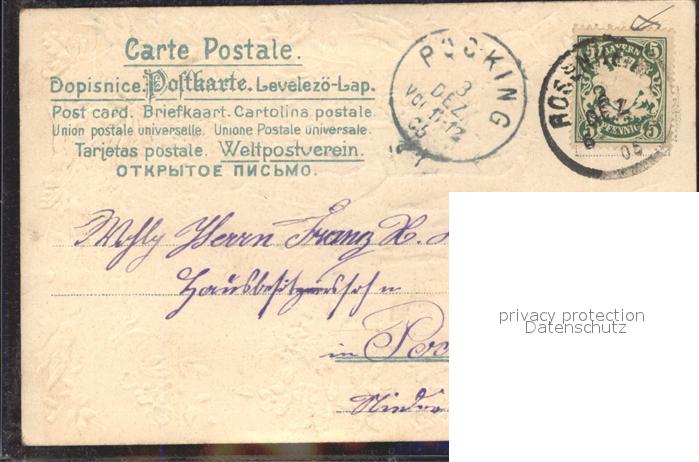 Carte Postale.
Dopisnice. Postkarte. Levelező-Lap.
Post card. Briefkaart. Cartolina postale.
Union postale universelle. Unione Postale universale.
Tarjetas postale. Weltpostverein.
ОТКРЫТОЕ ПИСЬМО.
POCKING
3
DEZ.
VOR 11-12
BAYERN
5 5
PFENNIG
5 5
Herrn Franz X.
Hausbesitzerssohn
in Poc
Nieder
privacy protection
Datenschutz